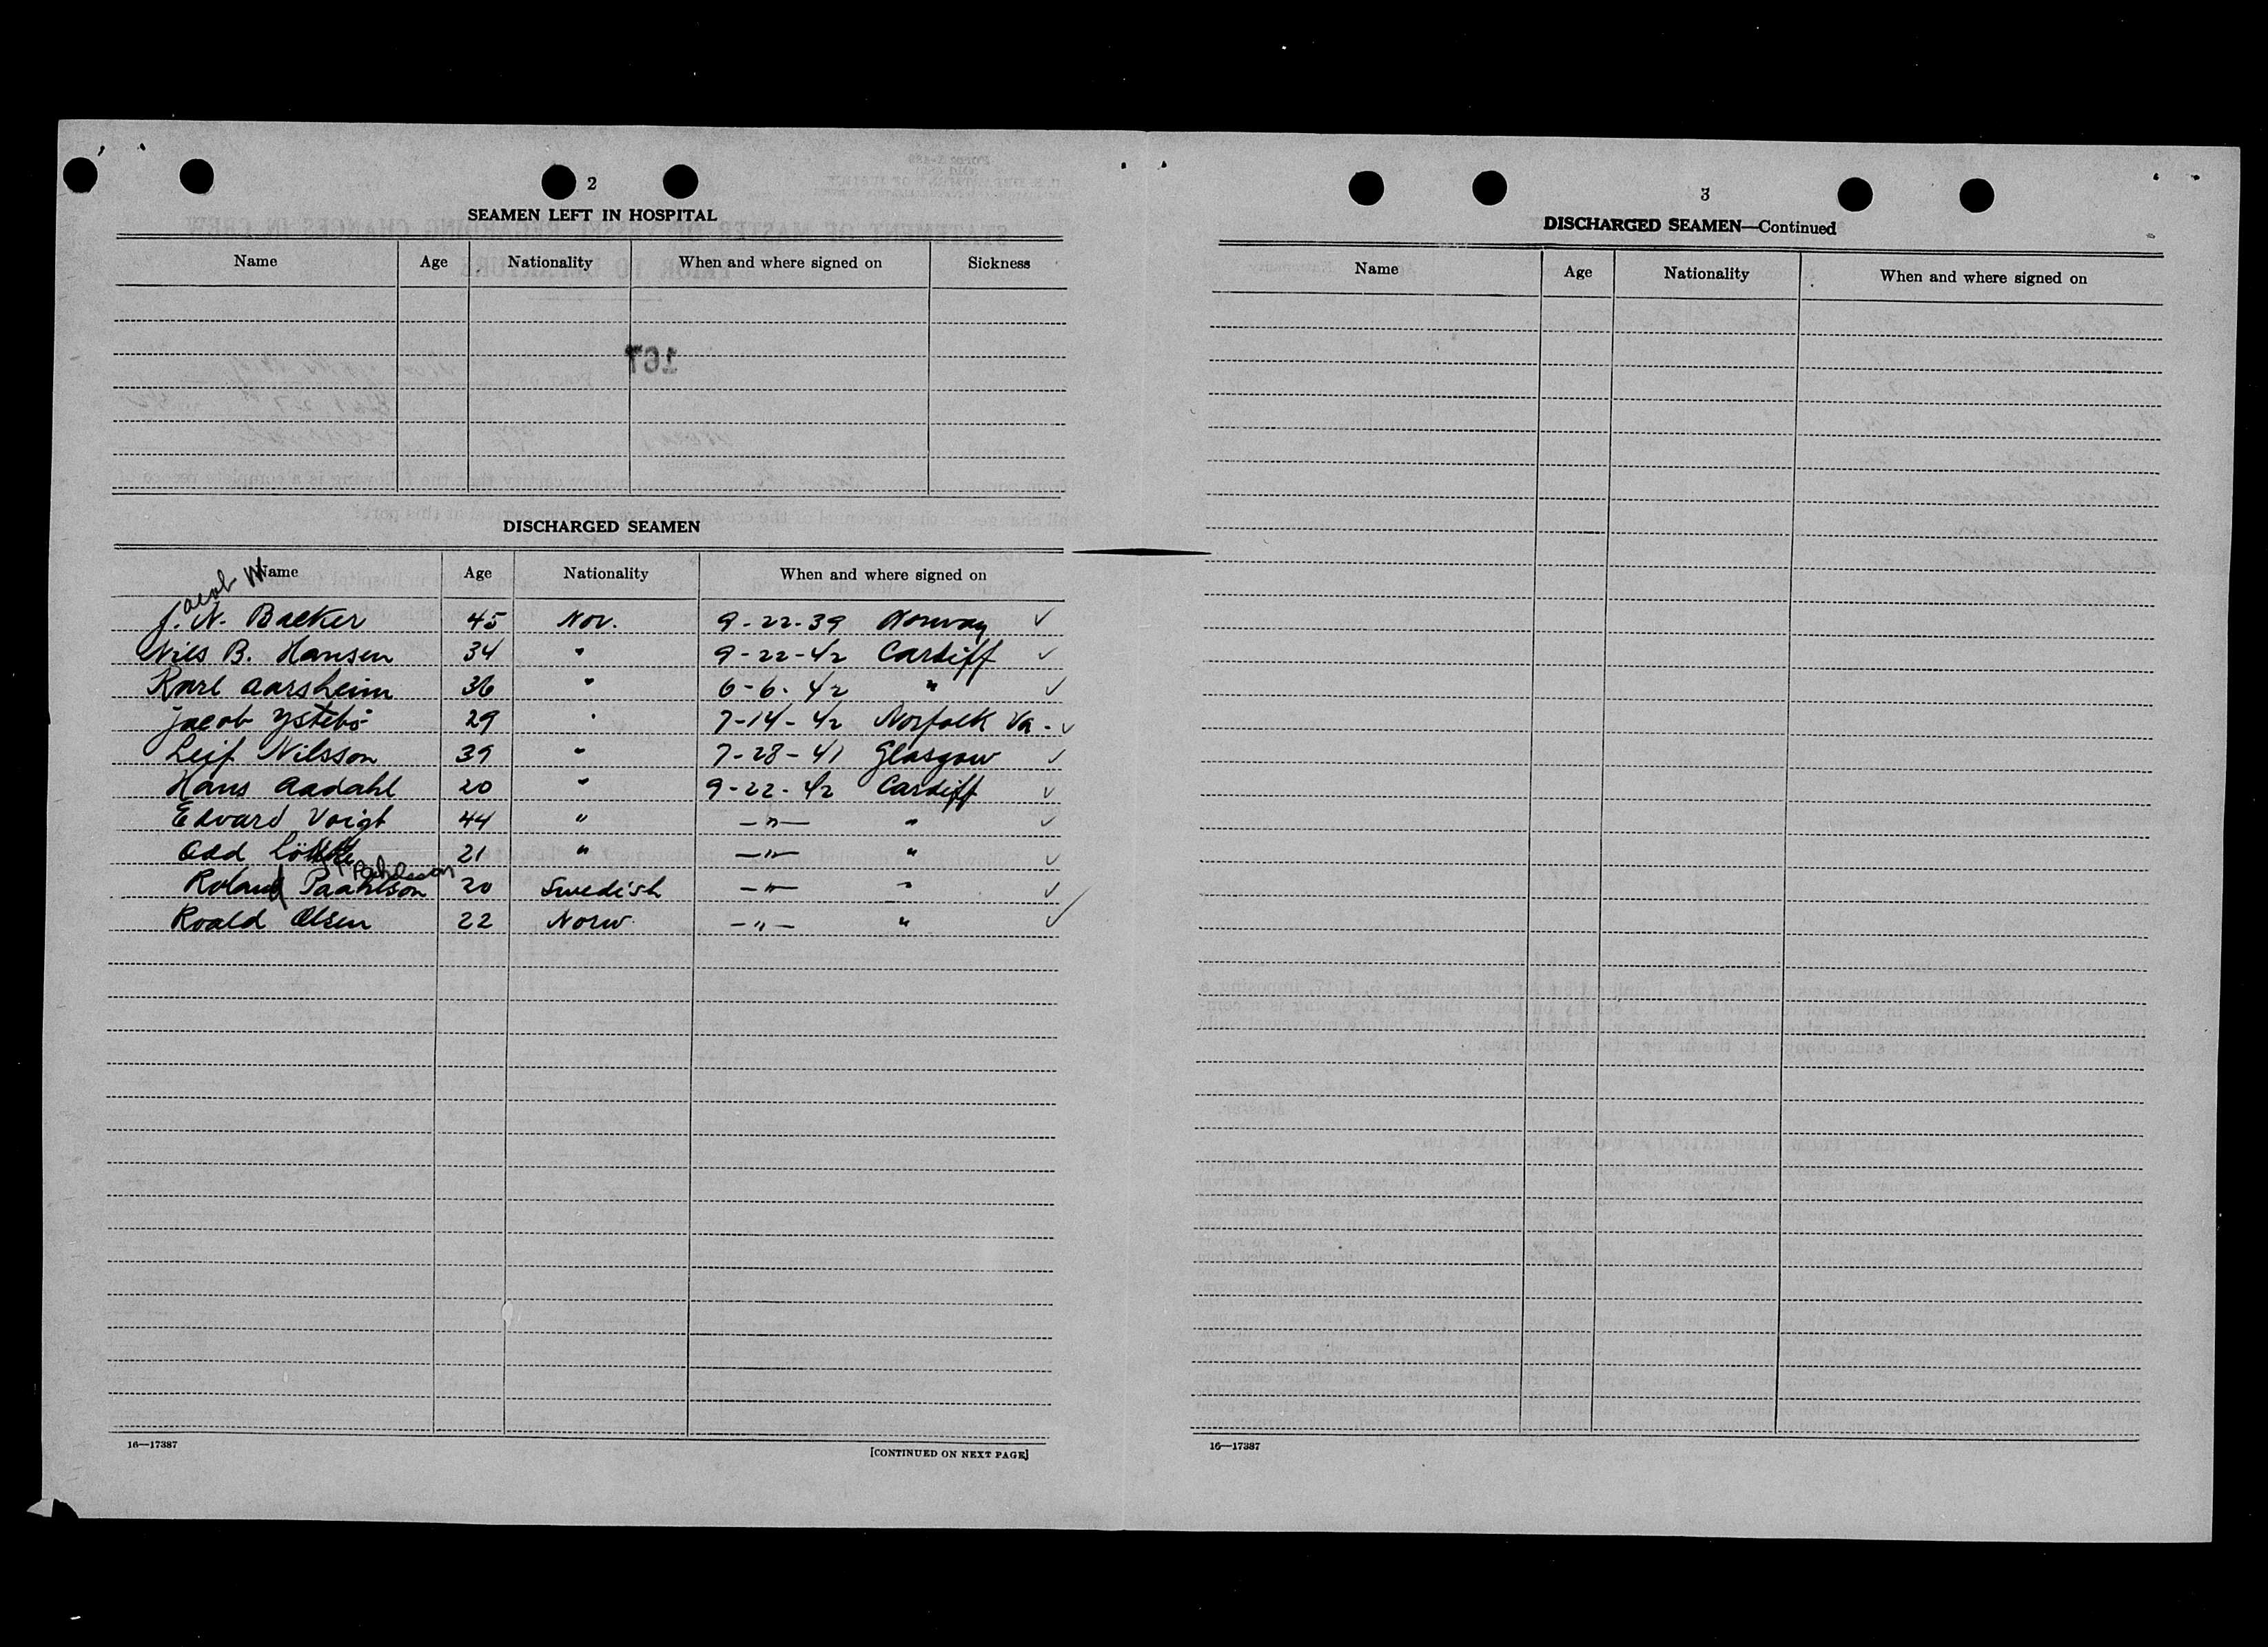 2
SEAMEN LEFT IN HOSPITAL
Name Age Nationality When and where signed on Sickness
167
DISCHARGED SEAMEN
Name Age Nationality When and where signed on
Jacob N
J. N. Backer 45 Nor. 9-22-39 Norway ✓
Nils B. Hansen 34 " 9-22-42 Cardiff ✓
Karl Aarsheim 36 " 6-6-42 " ✓
Jacob Ystebö 29 " 7-14-42 Norfolk Va. ✓
Leif Nilsson 39 " 7-28-41 Glasgow ✓
Hans Aadahl 20 " 9-22-42 Cardiff ✓
Edvard Voigt 44 " —"— " ✓
Odd 21 " —"— " ✓
Roland Paahlson 20 Swedish —"— " ✓
Roald Olsen 22 Norw. —"— " ✓
16—17387
[CONTINUED ON NEXT PAGE]
3
DISCHARGED SEAMEN—Continued
Name Age Nationality When and where signed on
16—17387